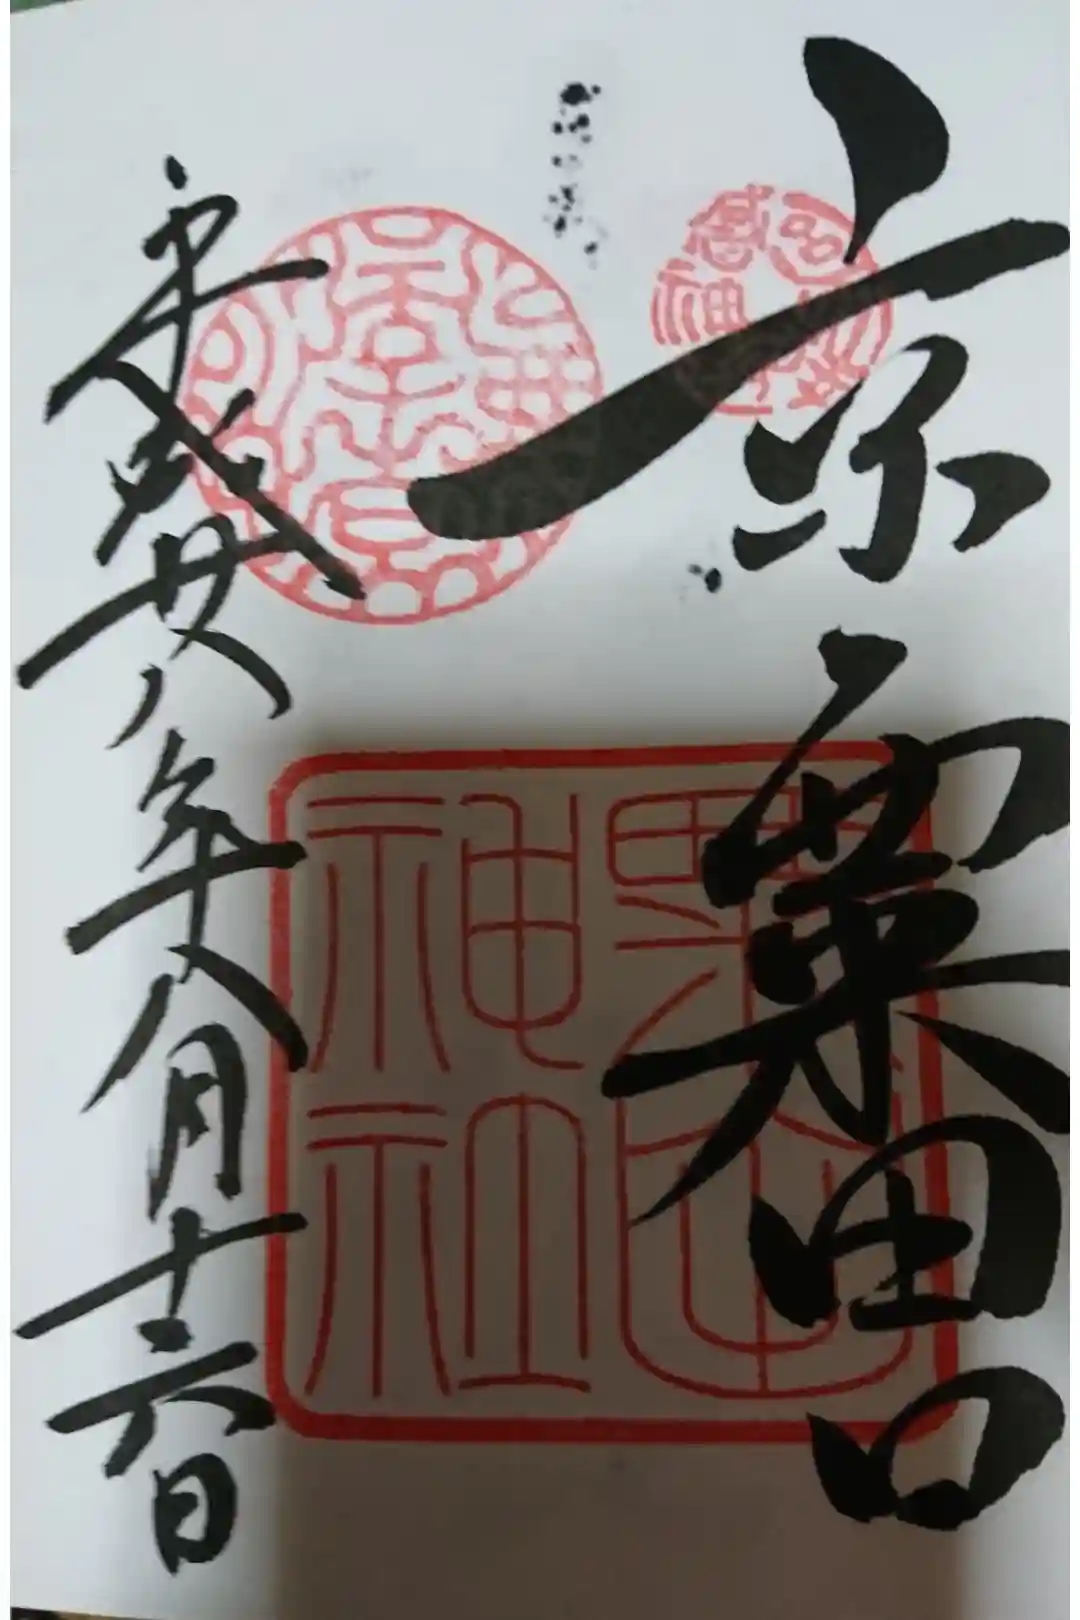 京粟田口
粟田神社
平成廿八年八月十六日